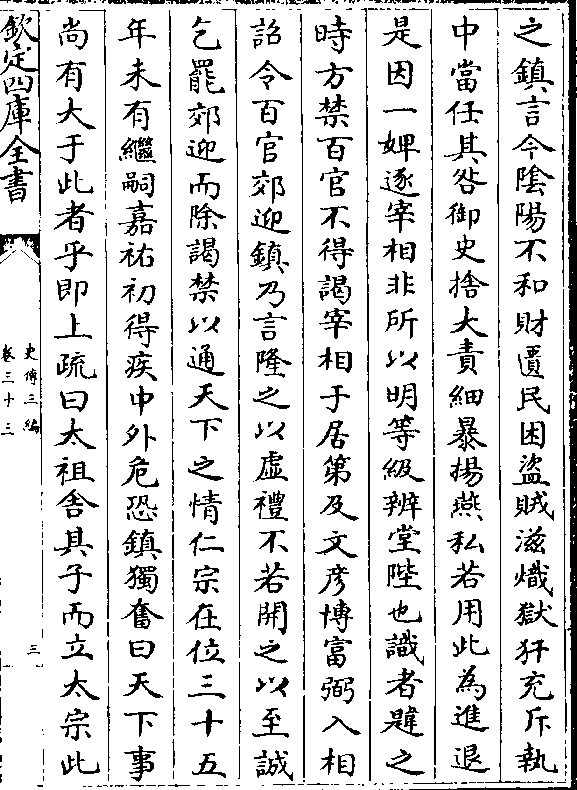 之鎮言今陰陽不和財匱民困盜賊滋熾獄犴充斥執
中當任其咎御史捨大責細暴揚燕私若用此為進退
是因一婢逐宰相非所以明等級辨堂陛也識者韙之
時方禁百官不得謁宰相于居第及文彦博富弼入相
詔令百官郊迎鎮乃言隆之以虛禮不若開之以至誠
乞罷郊迎而除謁禁以通天下之情仁宗在位三十五
年未有繼嗣嘉祐初得疾中外危恐鎮獨奮曰天下事
尚有大于此者乎即上疏曰太祖舍其子而立太宗此
欽定四庫全書
史傳三編
卷三十三
三